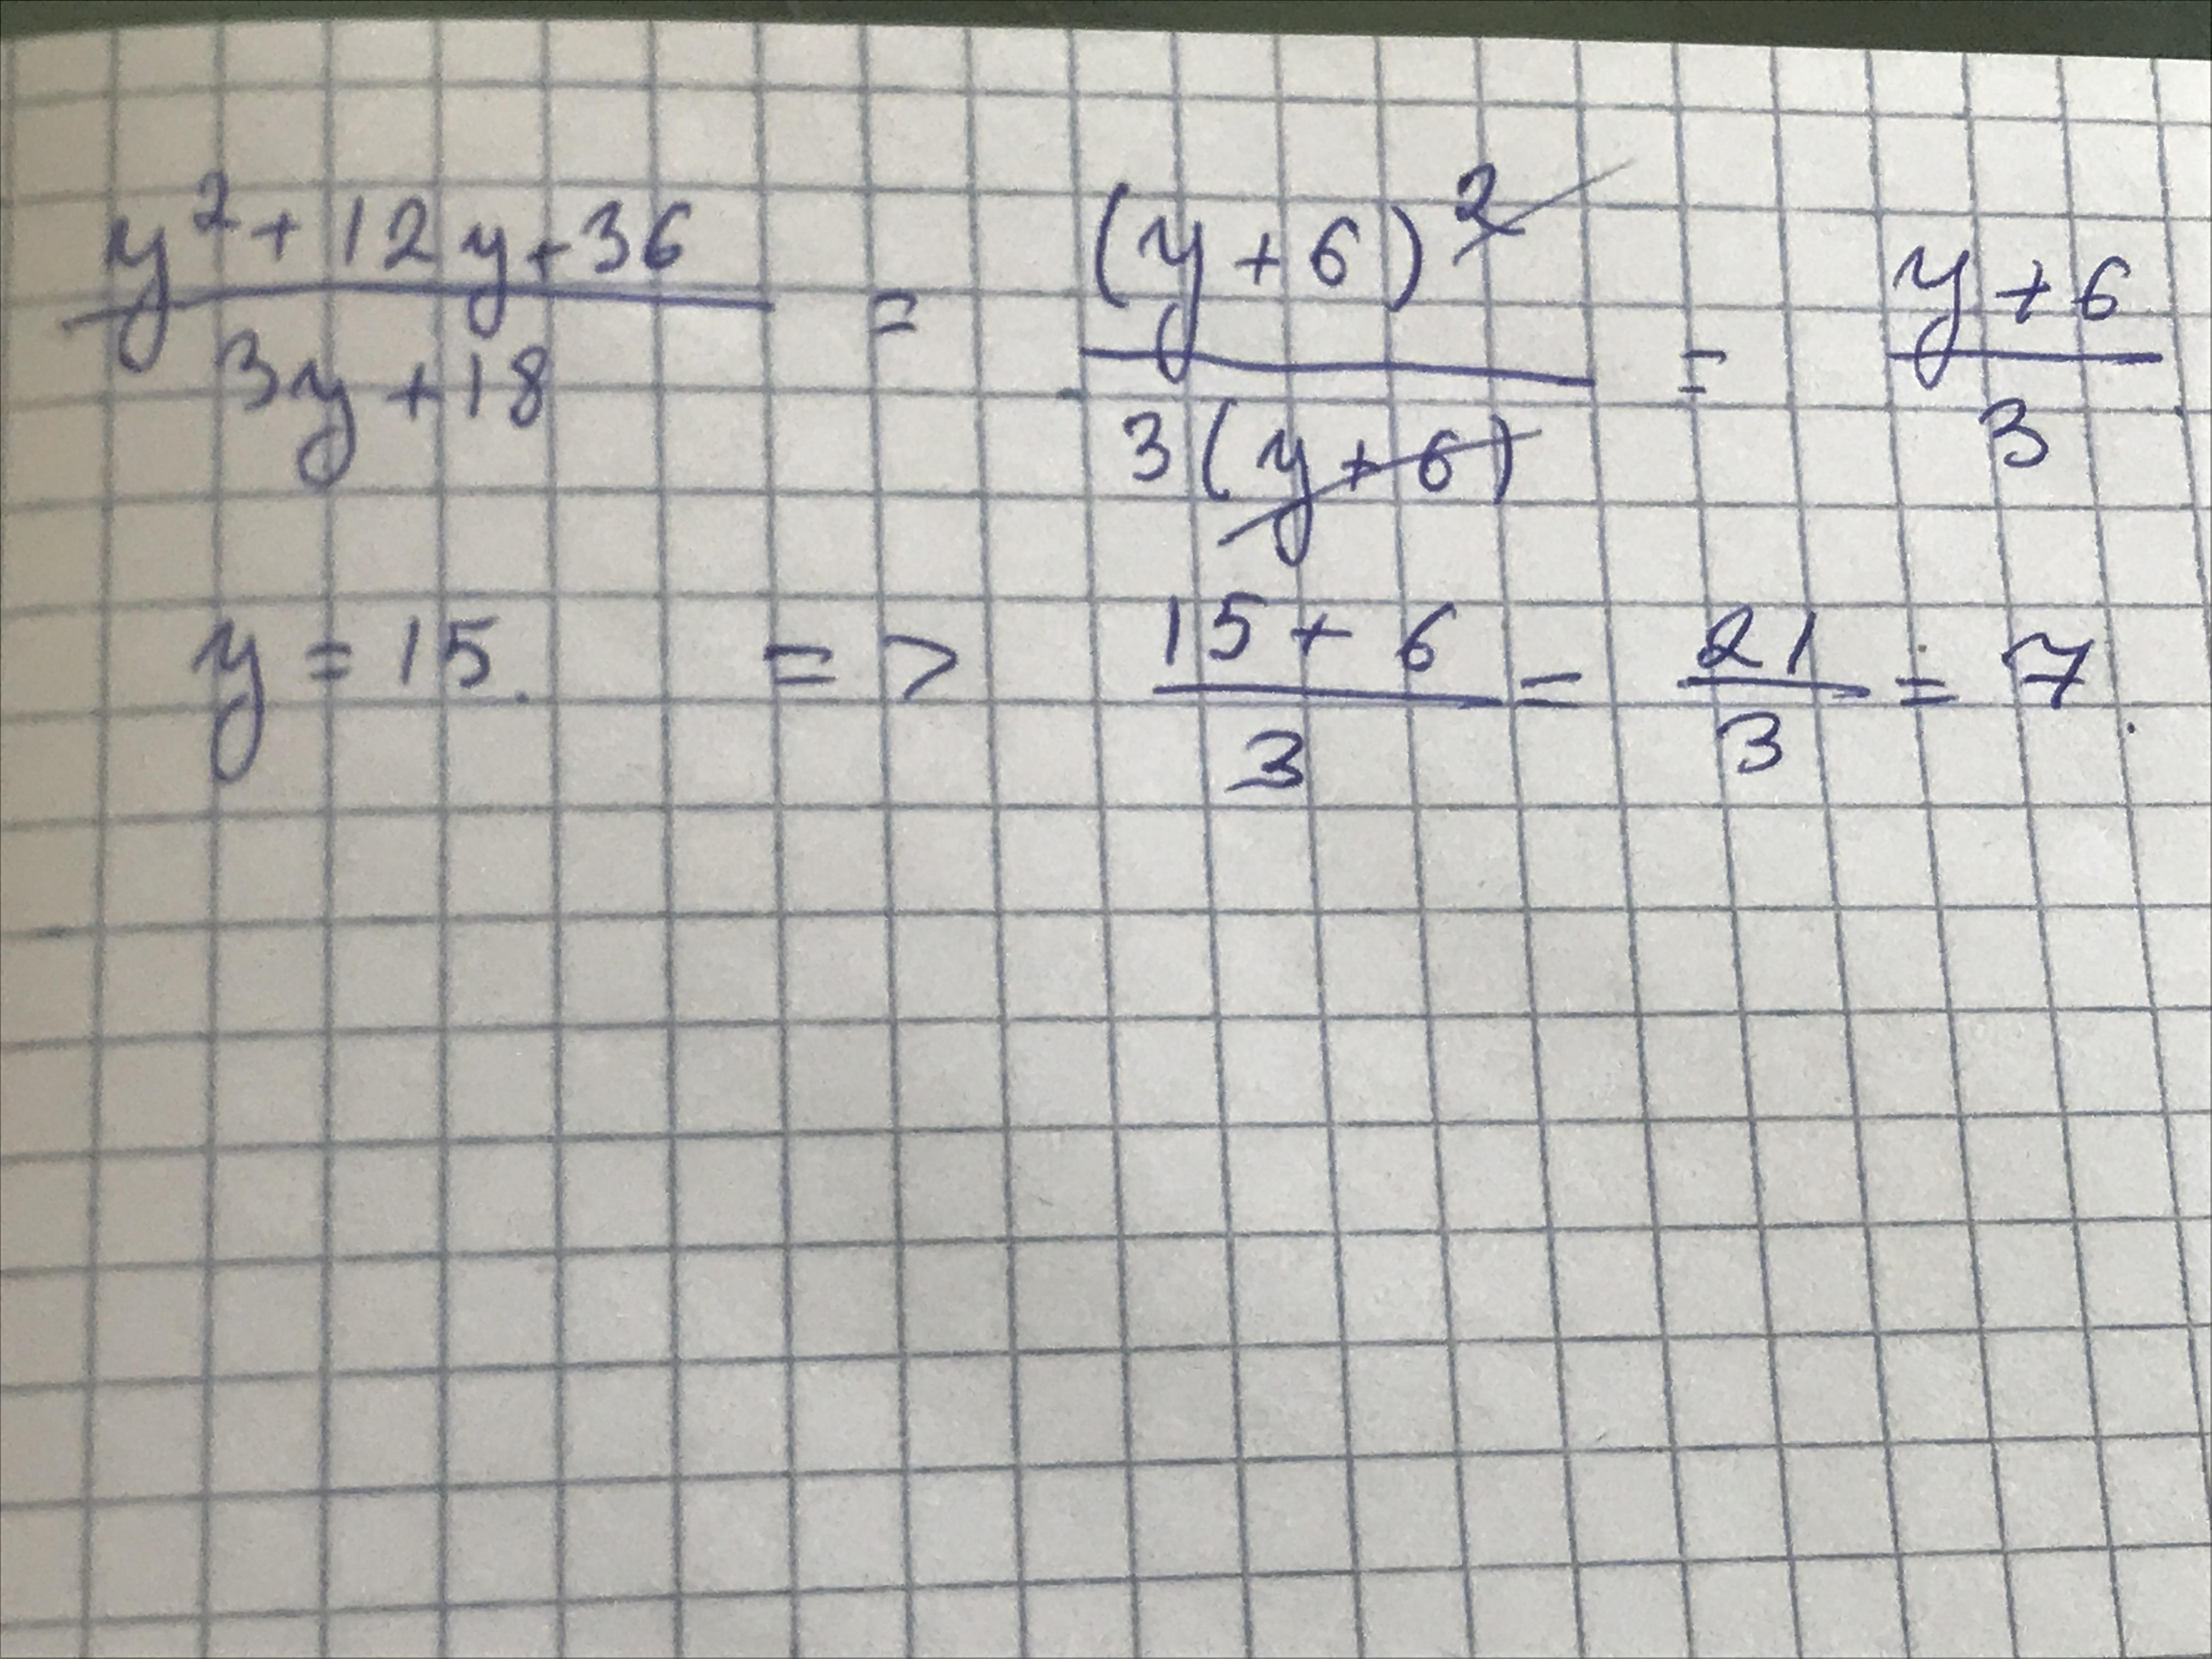 y² + 12y + 36 / 3y + 18 = (y + 6)² / 3(y + 6) = y + 6 / 3
y = 15. => 15 + 6 / 3 = 21 / 3 = 7.